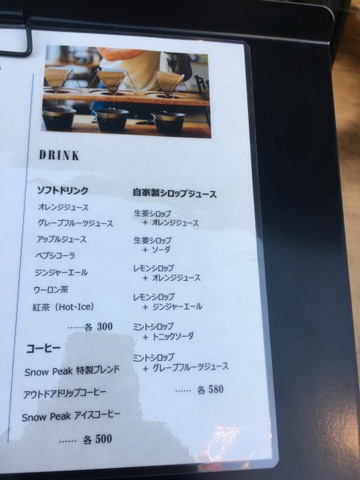 DRINK
ソフトドリンク
オレンジジュース
グレープフルーツジュース
アップルジュース
ペプシコーラ
ジンジャーエール
ウーロン茶
紅茶（Hot・Ice）
……各 300
コーヒー
Snow Peak 特製ブレンド
アウトドアドリップコーヒー
Snow Peak アイスコーヒー
…… 各 500
自家製シロップジュース
生姜シロップ
+ オレンジジュース
生姜シロップ
+ ソーダ
レモンシロップ
+ オレンジジュース
レモンシロップ
+ ジンジャーエール
ミントシロップ
+ トニックソーダ
ミントシロップ
+ グレープフルーツジュース
…… 各 580